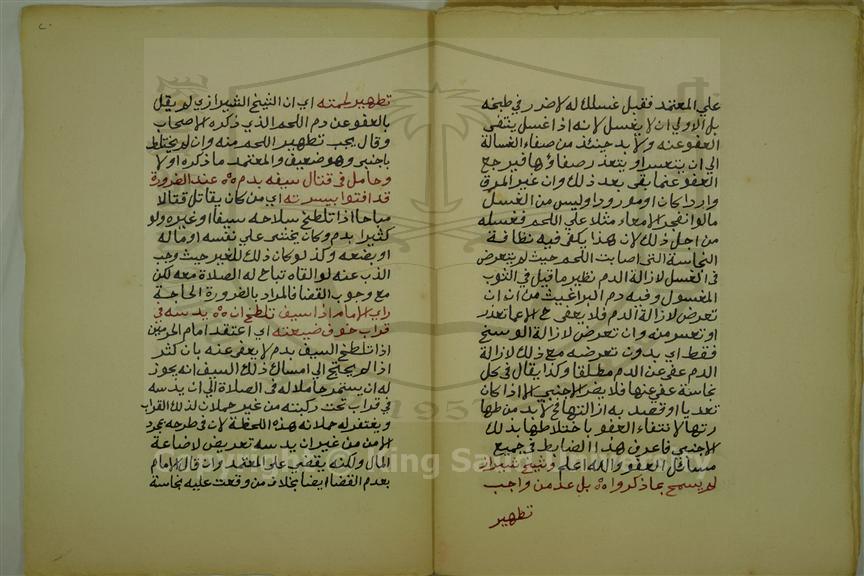 علي المعتمد فقبل غسلك له لا ضرر في طبخه
بل الاولي ان لا يغسل لانه اذا غسل ينتفى
العفو عنه ولا بد حينئذ من صفاء الغسالة
الي ان يتعسر او يتعذر صفاؤها فيرجع
العفو عما بقى بعد ذلك وان غير المرق
واردا كان او مورودا وليس من الغسل
ما لو انفجر الامعاء مثلا علي اللحم فغسله
من اجل ذلك لان هذا يكفى فيه نظافة
النجاسة التى اصابت اللحم حيث لم يتعرض
فى الغسل لازالة الدم نظير ما قيل في الثوب
المغسول وفيه دم البراغيث من ان ان
تعرض لازالة الدم فلا يعفى الا عما تعذر
او تعسر منه وان تعرض لازالة الوسخ
فقط اي بدون تعرضه مع ذلك لازالة
الدم عفي عن الدم مطلقا وكذا يقال في كل
نجاسة عفي عنها فلا يضر الاجنبي الا اذا كان
تعديا او قصد به ازالتها فح لا بد من طها
رتها لانتفاء العفو باختلاطها بذلك
الاجنبي فاعرف هذا الضابط في جميع
مسائل العفو والله اعلم وشيخ شيراز
لم يسمح بما ذكروا ه بل عد من واجب
تطهير
تطهير لحمته اي ان الشيخ الشيرازي لم يقل
بالعفو عن دم اللحم الذي ذكره الاصحاب
وقال يجب تطهير اللحم منه وان لم يختلط
باجنبي وهو ضعيف والمعتمد ما ذكره اولا
وحامل في قتال سيفه بدم ه عند الضرورة
قد افتوا بيسرته اي من كان يقاتل قتالا
مباحا اذا تلطخ سلاحه سيفا او غيره ولو
كثيرا بدم وكان يخشى علي نفسه او ماله
او بضعه وكذا لو كان ذلك للغير حيث وجب
الذب عنه لو القاه تباح له الصلاة معه لكن
مع وجوب القضا فالمراد بالضرورة الحاجة
راي الامام اذا سيف تلطخ ان ه يدسه في
قراب خوف ضيعته اي اعتقد امام الحرمين
اذا تلطخ السيف بدم لا يعفو عنه بان كثر
اذا لم يحتج الي امساك ذلك السيف انه يجوز
له ان يستمر حاملا له فى الصلاة الي ان يدسه
في قراب تحت ركبته من غير حملان لذلك القراب
ويغتفر له حملانه هذه اللحظة لان في طرحه بمجرد
الامن من غير ان يدسه تعريض لاضاعة
المال ولكنه يقضي علي المعتمد وان قال الامام
بعدم القضا ايضا بخلاف من وقعت عليه نجاسة
Copyright © King Saud University
1957